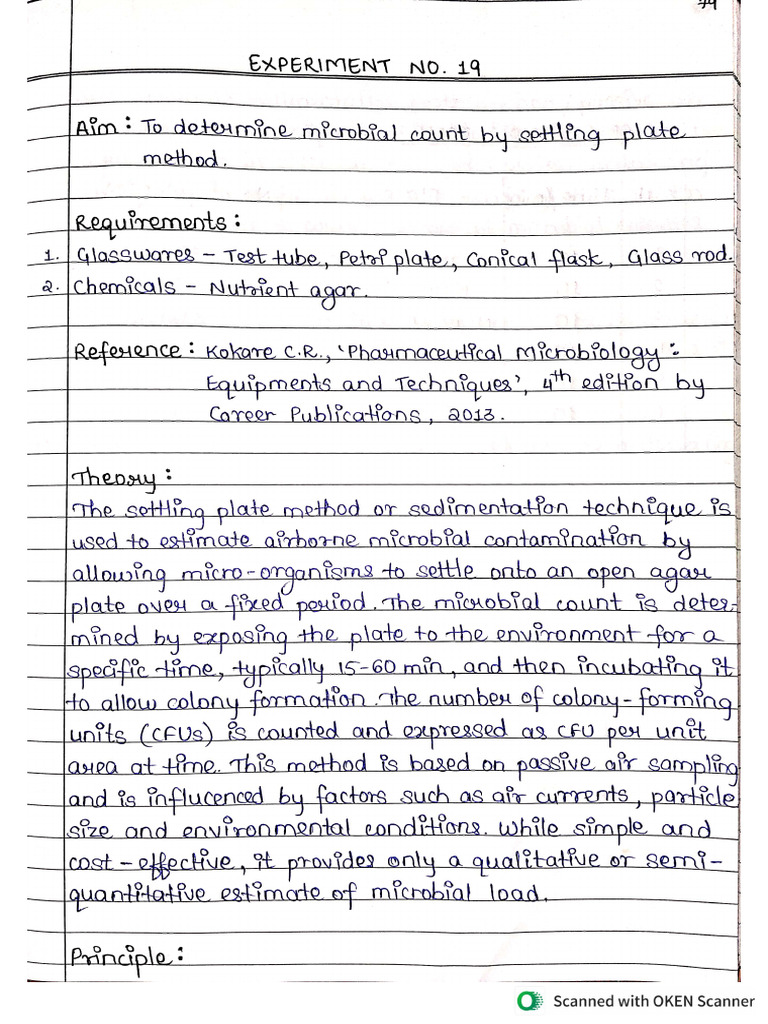 79
EXPERIMENT NO. 19
Aim : To determine microbial count by settling plate
method.
Requirements :
1. Glasswares – Test tube, Petri plate, Conical flask, Glass rod.
2. Chemicals – Nutrient agar.
Reference : Kokare C.R., 'Pharmaceutical Microbiology :
Equipments and Techniques', 4th edition by
Career Publications, 2013.
Theory :
The settling plate method or sedimentation technique is
used to estimate airborne microbial contamination by
allowing micro-organisms to settle onto an open agar
plate over a fixed period. The microbial count is deter-
mined by exposing the plate to the environment for a
specific time, typically 15-60 min, and then incubating it
to allow colony formation. The number of colony-forming
units (CFUs) is counted and expressed as CFU per unit
area at time. This method is based on passive air sampling
and is influcenced by factors such as air currents, particle
size and environmental conditions. While simple and
cost-effective, it provides only a qualitative or semi-
quantitative estimate of microbial load.
Principle :
Scanned with OKEN Scanner